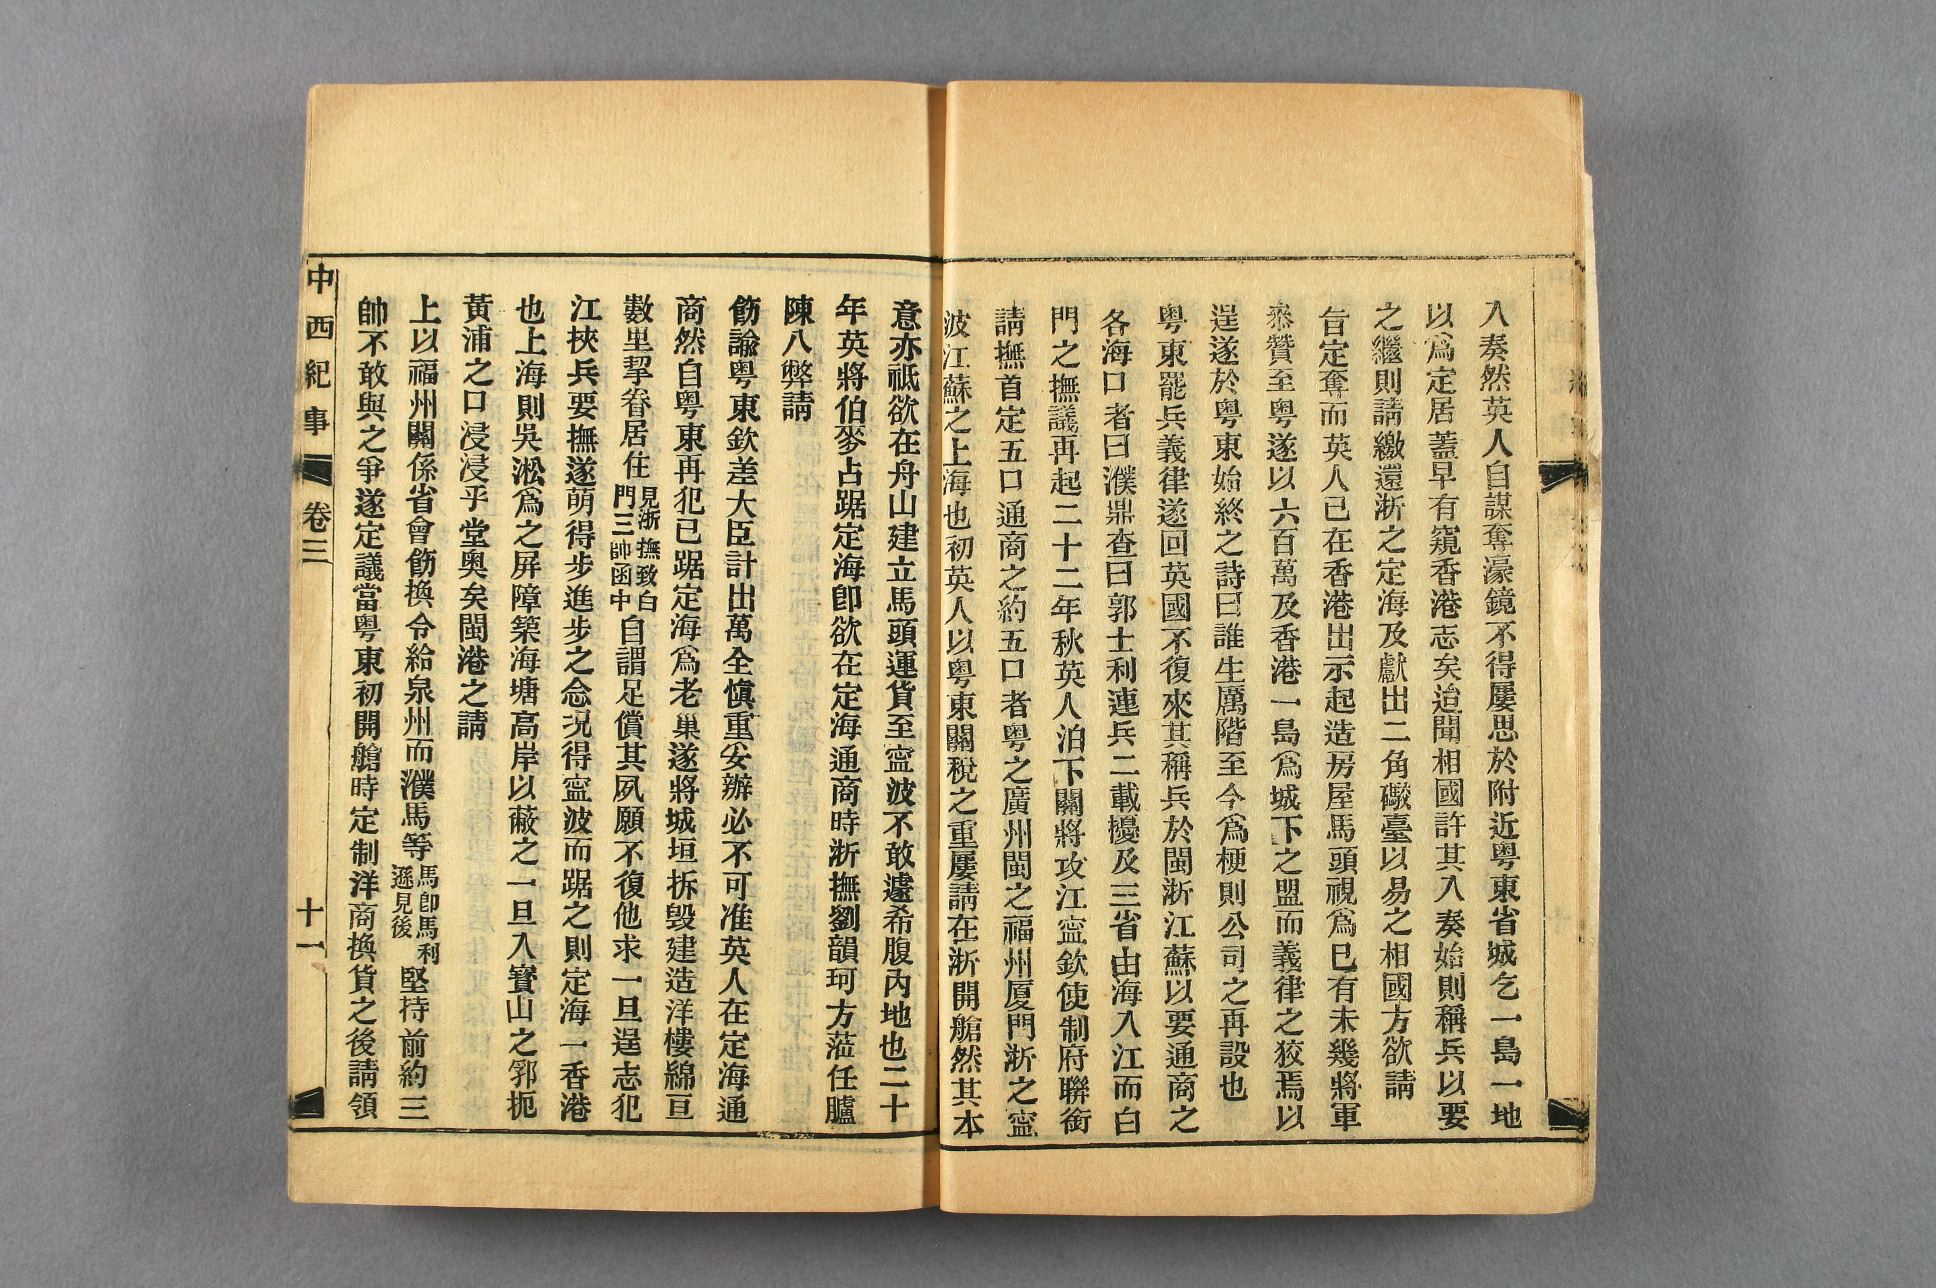 入奏然英人自謀奪濠鏡不得屢思於附近粤東省城乞一島一地
以爲定居蓋早有窺香港志矣迨聞相國許其入奏始則稱兵以要
之繼則請繳還浙之定海及獻出二角礮臺以易之相國方欲請
旨定奪而英人已在香港出示起造房屋馬頭視爲已有未幾將軍
叅贊至粤遂以六百萬及香港一島爲城下之盟而義律之狡焉以
逞遂於粤東始終之詩曰誰生厲階至今爲梗則公司之再設也
粤東罷兵義律遂回英國不復來其稱兵於閩浙江蘇以要通商之
各海口者曰濮鼎查曰郭士利連兵二載擾及三省由海入江而白
門之撫議再起二十二年秋英人泊下關將攻江寍欽使制府聯銜
請撫首定五口通商之約五口者粤之廣州閩之福州廈門浙之寍
波江蘇之上海也初英人以粤東關稅之重屢請在浙開艙然其本
意亦祗欲在舟山建立馬頭運貨至寍波不敢遽希腹內地也二十
年英將伯麥占踞定海卽欲在定海通商時浙撫劉韻珂方蒞任臚
陳八弊請
飭諭粤東欽差大臣計出萬全愼重妥辦必不可准英人在定海通
商然自粤東再犯已踞定海爲老巢遂將城垣拆毁建造洋樓綿亘
數里挈眷居住見浙撫致白門三帥函中自謂足償其夙願不復他求一旦逞志犯
江挾兵要撫遂萌得步進步之念況得寍波而踞之則定海一香港
也上海則吳淞爲之屏障築海塘高岸以蔽之一旦入寳山之郛扼
黃浦之口浸浸乎堂奧矣閩港之請
上以福州關係省會飭換令給泉州而濮馬等馬卽馬利遜見後堅持前約三
帥不敢與之爭遂定議當粤東初開艙時定制洋商換貨之後請領
中西紀事 卷三 十一